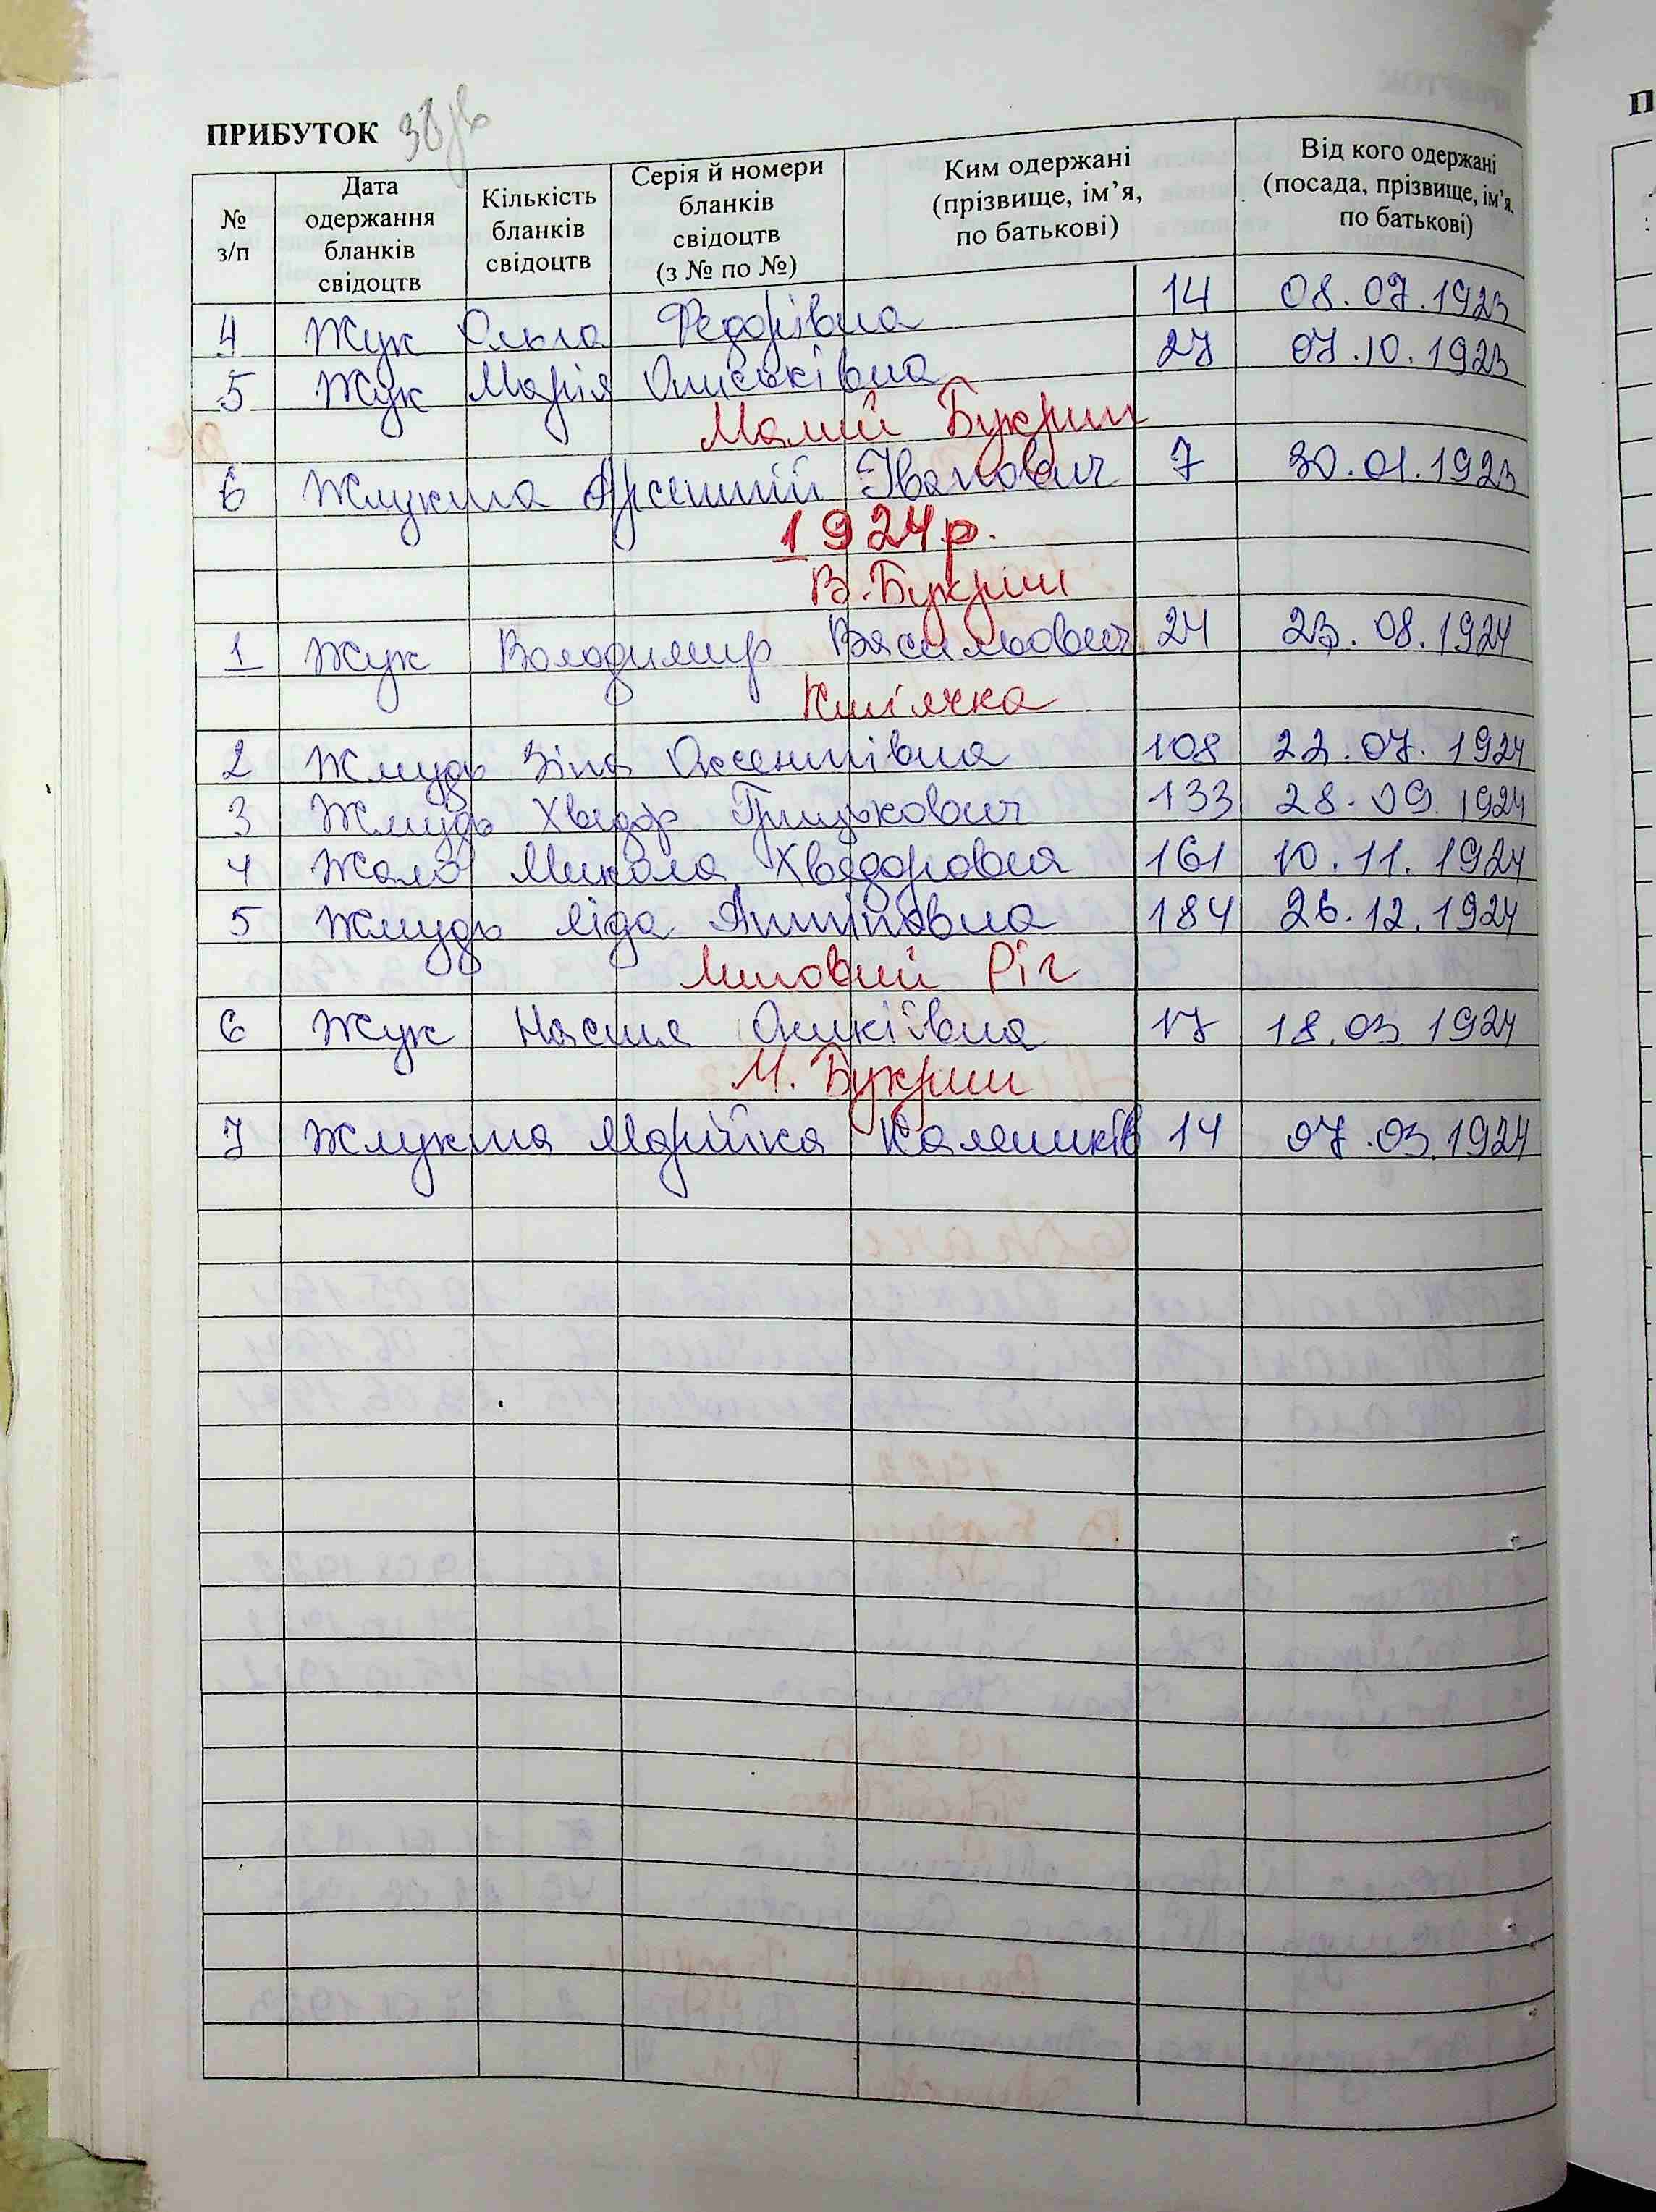 ПРИБУТОК 38
№ з/п
Дата одержання бланків свідоцтв
Кількість бланків свідоцтв
Серія й номери бланків свідоцтв (з № по №)
Ким одержані (прізвище, ім’я, по батькові)
Від кого одержані (посада, прізвище, ім’я, по батькові)
4 Жук Ольга Федорівна 14 08.07.1923
5 Жук Марія Ониськівна 27 07.10.1923
Малий Букрин
6 Жлукта Арсентій Іванович 7 30.01.1923
1924р.
В. Букрин
1 Жук Володимир Васильович 24 23.08.1924
Кип'ячка
2 Жмудь Зіна Оксентівна 108 22.07.1924
3 Жмудь Хведор Грицькович 133 28.09.1924
4 Жало Микола Хведоровия 161 10.11.1924
5 Жмудь Ліда Антипівна 184 26.12.1924
Липовий Ріг
6 Жук Настя Оникіївна 17 18.03.1924
М. Букрин
7 Жлукта Марійка Калеників 14 07.03.1924